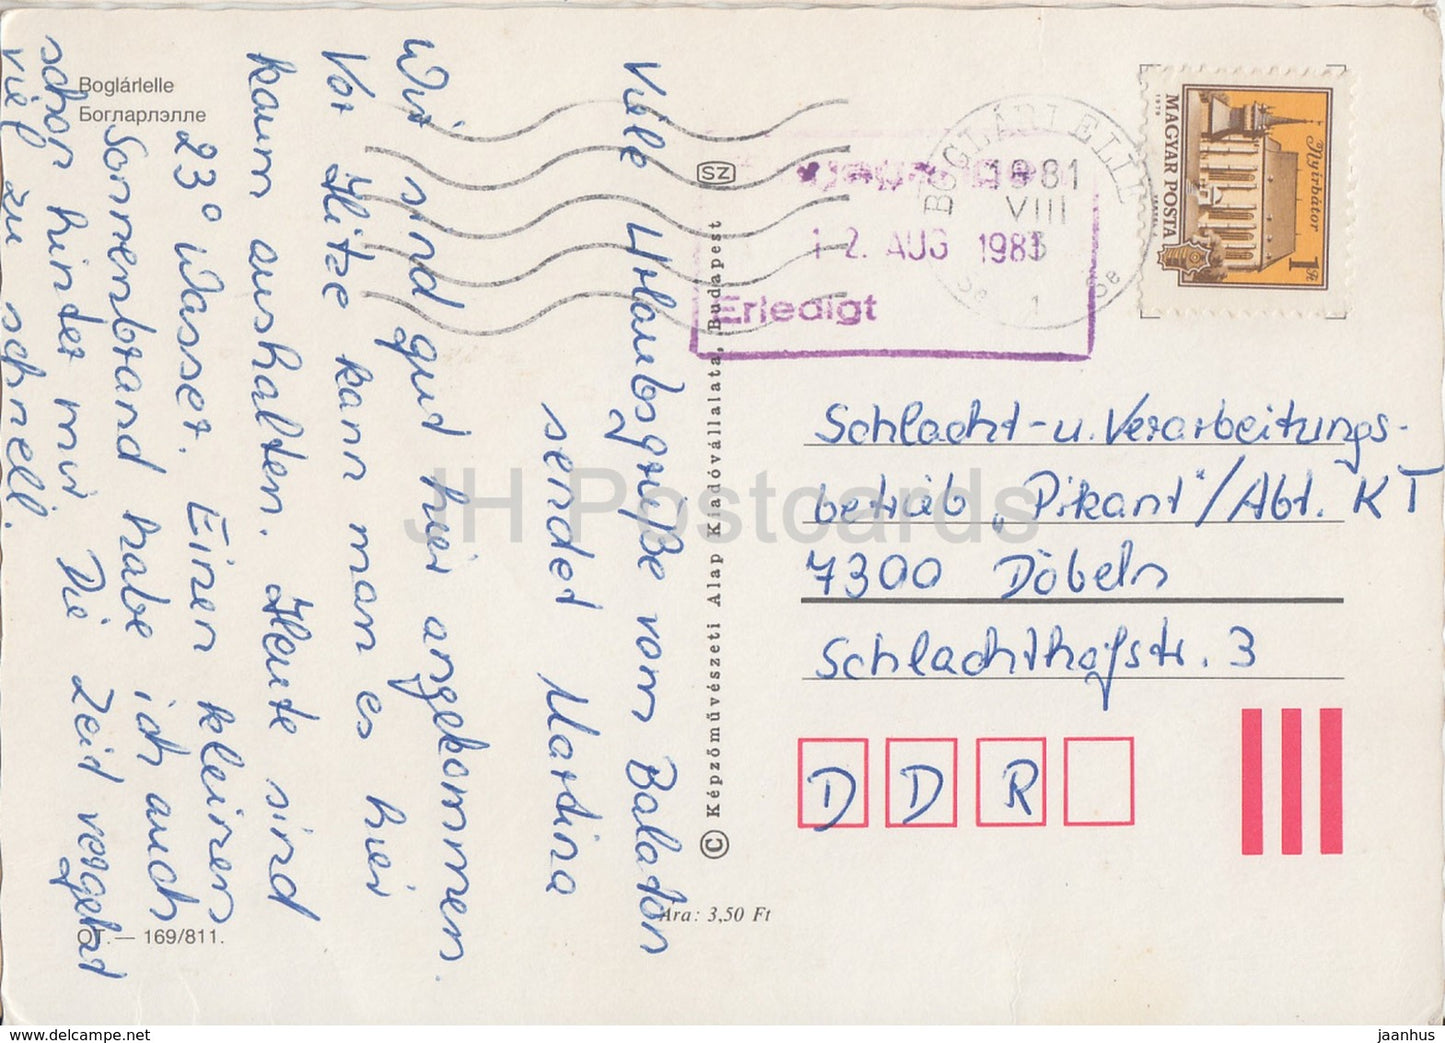 Boglárlelle
Богларлэлле
Viele Urlaubsgrüße vom Balaton
sendet Martina
Wir sind gut hier angekommen.
Vor Hitze kann man es hier
kaum aushalten. Heute sind
23° Wasser. Einen kleinen
Sonnenbrand habe ich auch
schon hinter mir. Die Zeit vergeht
viel zu schnell.
OT. — 169/811.
SZ
© Képzőművészeti Alap Kiadóvállalata, Budapest
Ára: 3,50 Ft
BOGLÁRLELLE
1981
VIII
1
12. AUG 1981
Erledigt
MAGYAR POSTA
1979
Nyírbátor
1 Ft
Schlacht- u. Verarbeitungs-
betrieb „Pikant"/Abt. KT
7300 Döbeln
Schlachthofstr. 3
D D R
JH Postcards
www.delcampe.net
jaanhus